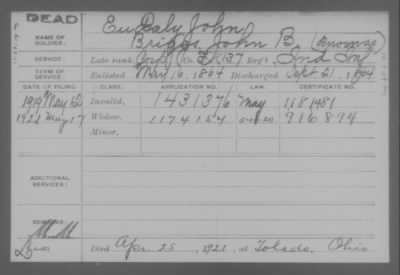 DEAD
NAME OF SOLDIER:
EuDaly, John
Briggs, John B.
SERVICE:
Late rank, Co. 137 Reg't, Ind
TERM OF SERVICE:
Enlisted May 16, 1864 Discharged Sept 21, 1864
DATE OF FILING. CLASS. APPLICATION NO. LAW. CERTIFICATE NO.
1919 May Invalid, 1431376 May 1181481
1921 May 17 Widow, 1174154 916894
Minor,
ADDITIONAL SERVICES:
REMARKS:
Died Apr. 25, 1921, at Toledo, Ohio